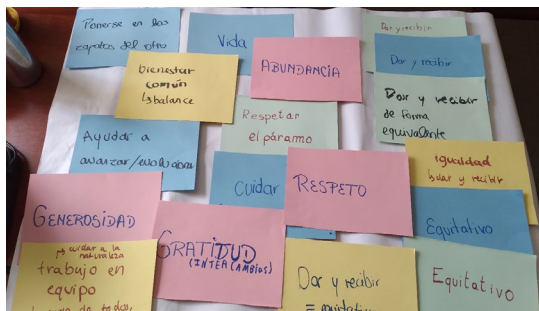 Ponerse en los
zapatos del otro
Vida
Dar y recibir
Dar y recibir
bienestar
común
↳ balance
ABUNDANCIA
Dar y recibir
de forma
equivalente
Respetar
el páramo
Ayudar a
avanzar/evolucionar
igualdad
↳ dar y recibir
Cuidar
RESPETO
GENEROSIDAD
GRATITUD
(INTERCAMBIOS)
Equitativo
↳ cuidar a la
naturaleza
trabajo en
equipo
de todos,
Dar y recibir
= equitativo
Equitativo